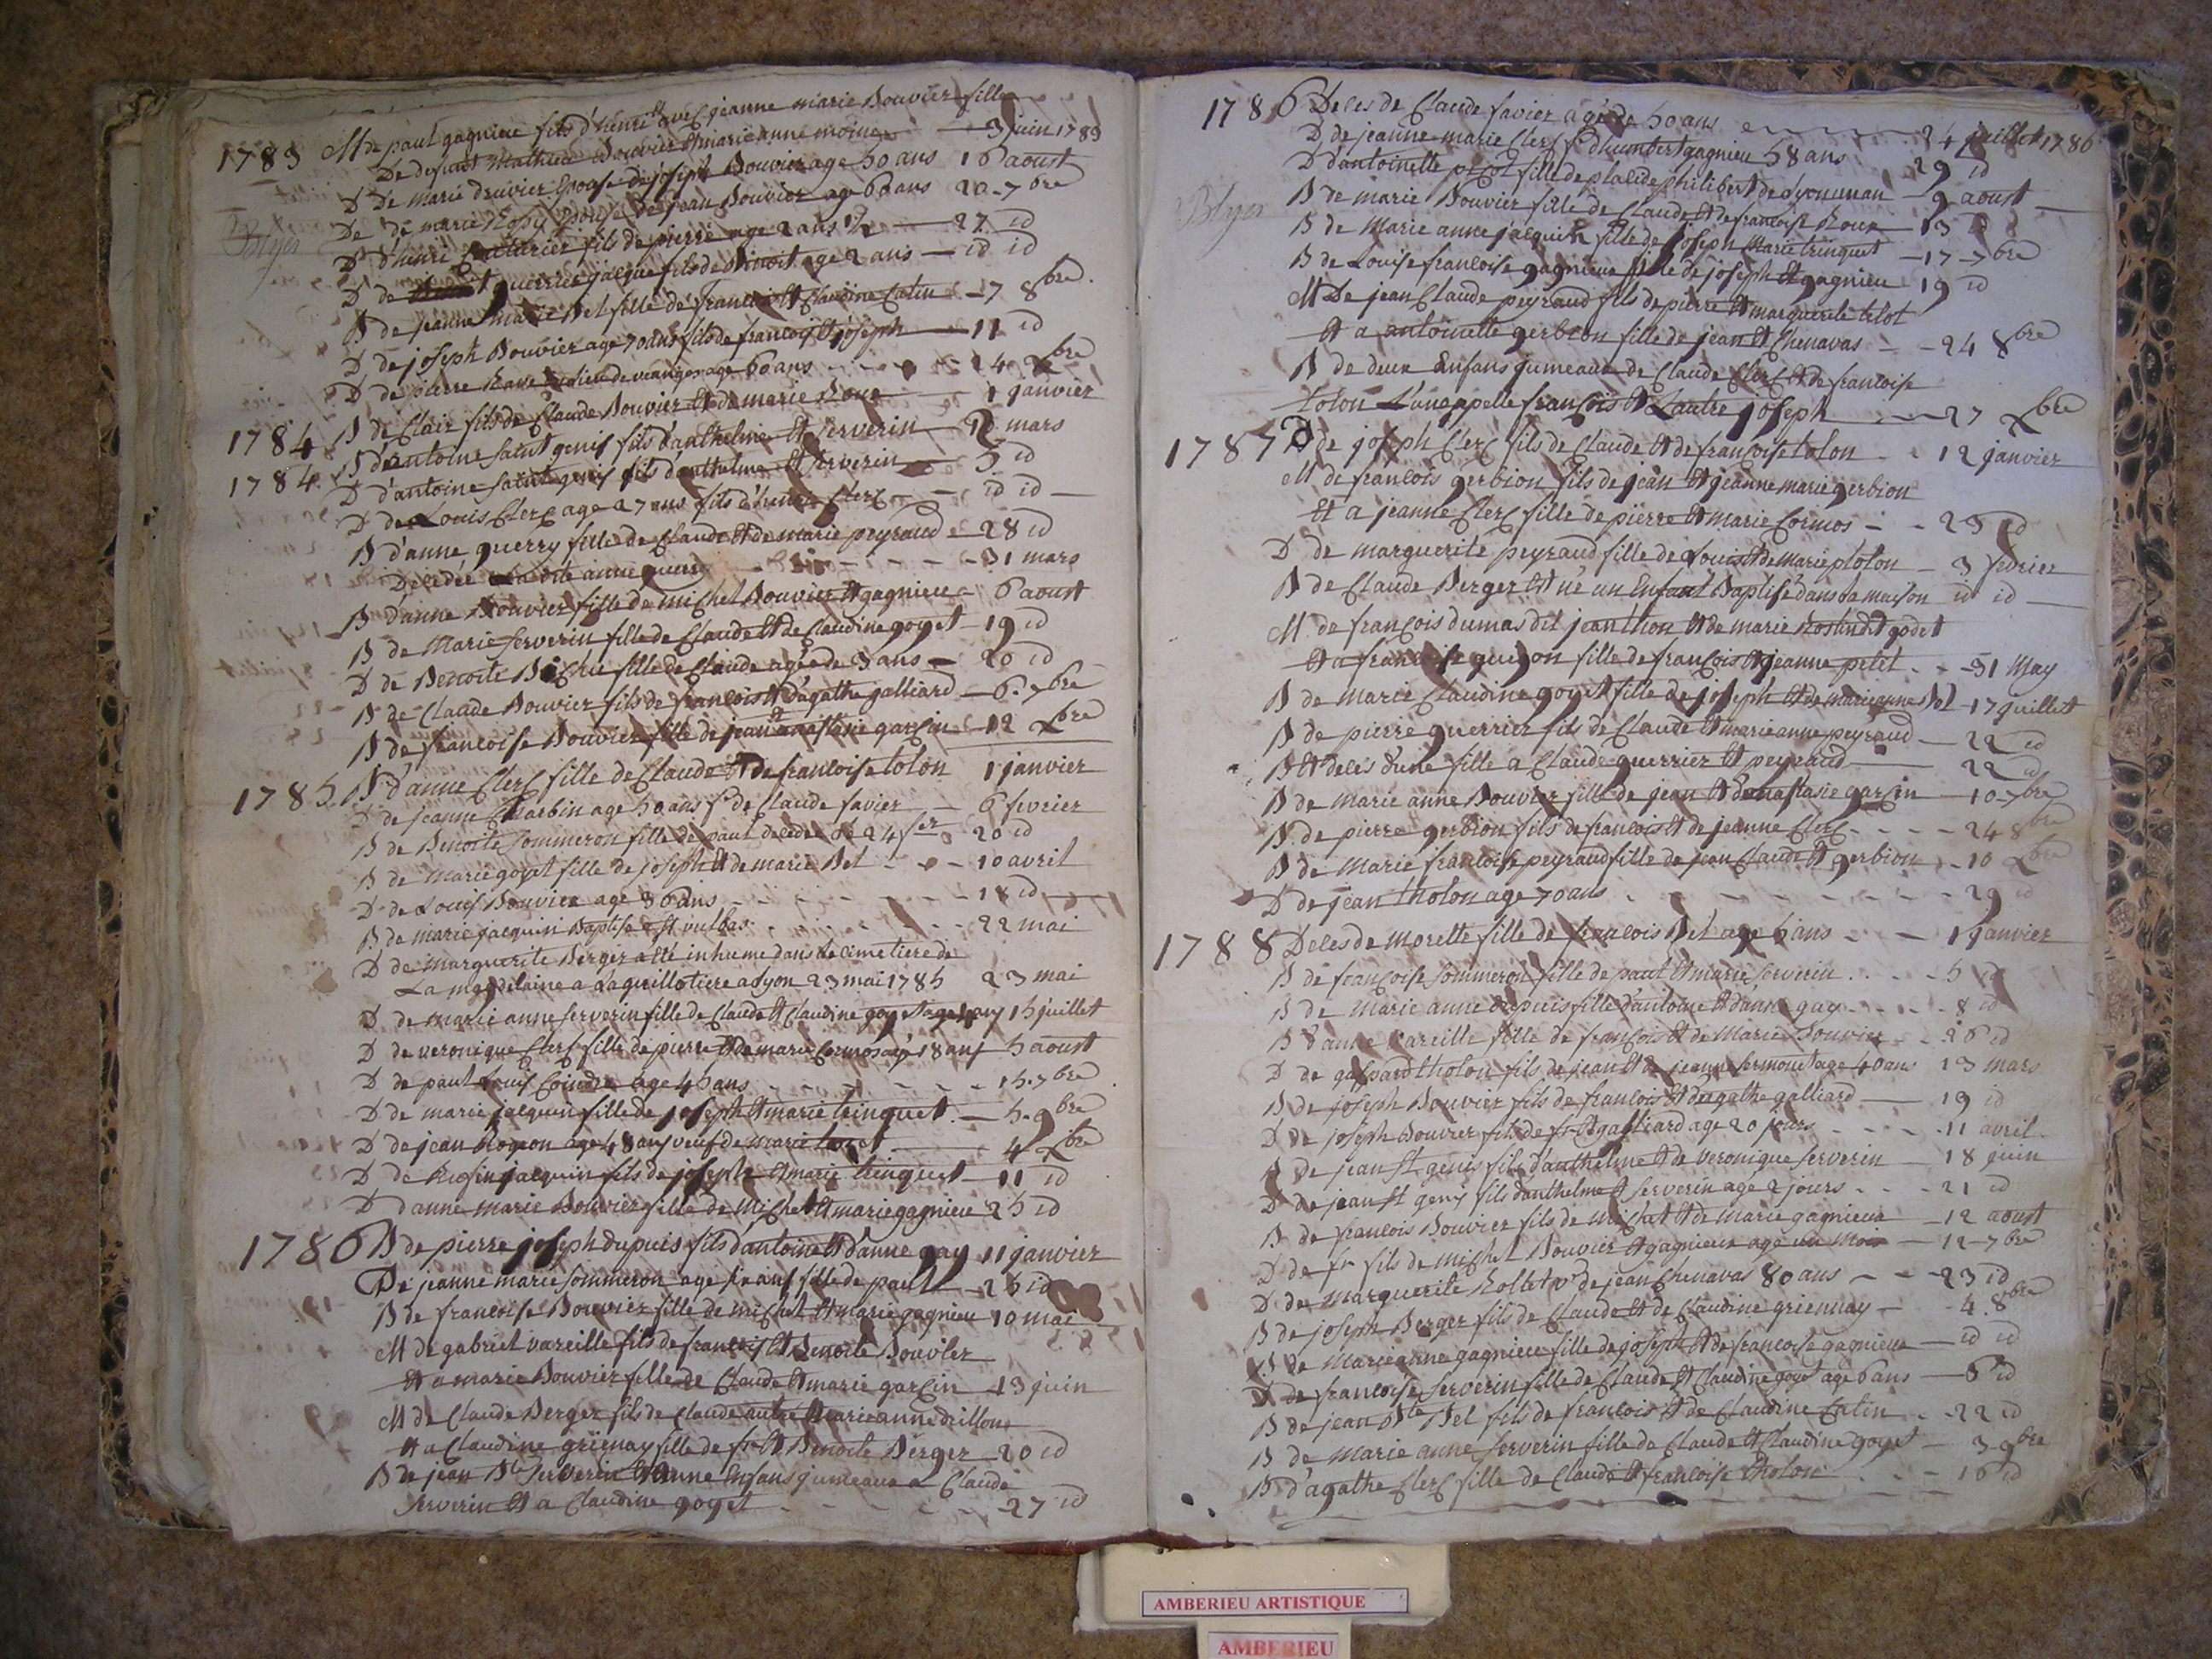 1783 M de paul gagnieu fils d'henri et avec jeanne marie Bouvier fille
De defunt Mathieu Bouvier et marie anne moine — 3 juin 1783
D De marie druvier Epouse de joseph Bouvier age 50 ans 16 aoust
De de marie Epouse de jean Bouvier age 60 ans 20 7bre
Blyes
D d'henri fils de pierre age 2 ans ½ — 27 id
D de guerrier jacque fils de Benoit age 2 ans — id id
B de jeanne marie Bel fille de francois et Claudine Catin — 7 8bre
D de joseph Bouvier age 70 ans fils de francois et joseph — 11 id
D de pierre age 60 ans - - - 24 xbre
1784 B de Clair fils de Claude Bouvier et de marie Roux — 1 janvier
1784 B d'antoine saint genis fils d'anthelme et serverin — 2 mars
D d'antoine saint genis fils d'anthelme et serverin — 5 id
D de Louis Clerc age 27 ans fils d'henri Clerc — id id —
B d'anne guerry fille de Claude et de marie peyraud — 28 id
Decedée la dite anne guerry - - - 31 mars
B d'anne Bouvier fille de michel Bouvier et gagnieu — 6 aoust
B de Marie serverin fille de Claude et de Claudine goyet — 19 id
D de Benoite fille de Claude agée de 3 ans — 20 id
B de Claude Bouvier fils de francois et d'agathe galliard — 6. 7bre
B de francoise Bouvier fille de jean et anastasie garcin — 12 xbre
1785 B d'anne Clerc fille de Claude et de francoise tolon 1 janvier
D de jeanne Charbin age 50 ans f.e de Claude favier — 6 fevrier
B de Benoite sommeron fille de paul decedée le 24 fer 20 id
B de marie goyet fille de joseph et de marie Bel - - 10 avril
D de Louis Bouvier age 36 ans - - - 18 id
B de marie jacquin Baptisé a st vulbas - - - 22 mai
D de marguerite Berger a été inhumé dans le cimetiere de
La magdelaine a la guillotiere a Lyon 23 mai 1785 23 mai
D de marie anne serverin fille de Claude et Claudine goyet age ans 15 juillet
D de veronique Clerc fille de pierre et de marie Cormos age 18 ans 5 aoust
D de paul Louis Coindre age 45 ans - - - 15. 7bre
D de marie jacquin fille de joseph et marie trinquet — 5. 9bre
D de jean Rognon age 48 ans veuf de marie — 4 xbre
D de Rosin jacquin fils de joseph et marie trinquet — 11 id
D d'anne marie Bouvier fille de michel et marie gagnieu 25 id
1786 B de pierre joseph dupuis fils d'antoine et d'anne gay 11 janvier
De jeanne marie sommeron age six ans fille de paul — 25 id
B de francoise Bouvier fille de michel et marie gagnieu 10 mai
M de gabriel vareille fils de francois et Benoite Bouvier
et a marie Bouvier fille de Claude et marie garcin — 13 juin
M de Claude Berger fils de Claude autre et marie anne drillon
et a Claudine griennay fille de f.s et Benoite Berger — 20 id
B de jean Bte serverin et anne Enfans jumeaux a Claude
serverin et a Claudine goyet - - - 27 id
1786 Deces de Claude favier agé de 50 ans — 24 juillet 1786
D de jeanne marie Clerc f.e d'humbert gagnieu 58 ans 29 id
D d'antoinette fille de placide philibert de Lyon — 9 aoust
Blyes
B de marie Bouvier fille de Claude et de francoise Roux 13 id
B de Marie anne jacquin fille de joseph Marie trinquet — 17 7bre
B de Louise francoise gagnieu fille de joseph et gagnieu 19 id
M De jean Claude peyraud fils de pierre et marguerite tilot
et a antoinette gerbion fille de jean et Chenavas — 24 8bre
B de deux Enfans jumeaux de Claude Clerc et de francoise
tolon L'un appelle francois et L'autre joseph — 27 xbre
1787 D de joseph Clerc fils de Claude et de francoise tolon - 12 janvier
M de francois gerbion fils de jean et jeanne marie gerbion
et a jeanne Clerc fille de pierre et marie Cormos - 23 id
D de marguerite peyraud fille de Louis et de marie ploton — 3 fevrier
B de Claude Berger et né un Enfant Baptisé dans la maison id id
M. de francois dumas dit jean thon et de marie godet
et a francoise guyon fille de francois et jeanne petit - - 31 May
B de marie Claudine goyet fille de joseph et de marie anne Bel — 17 juillet
B de pierre guerrier fils de Claude et marie anne peyraud — 22 id
B et deces d'une fille a Claude guerrier et peyraud — 22 id
B de marie anne Bouvier fille de jean et d'anastasie garcin — 10 7bre
B de pierre gerbion fils de francois et de jeanne Clerc - - 24 8bre
B de Marie francoise peyraud fille de jean Claude et gerbion — 10 xbre
D de jean tholon age 70 ans - - - 29 id
1788 Deces de Morelle fille de francois Bel age 5 ans - - 1 janvier
B de francoise sommeron fille de paul et marie serverin - - 5 id
B de Marie anne dupuis fille d'antoine et d'anne gay - - 8 id
B d'anne vareille fille de francois et de Marie Bouvier - 26 id
D de gaspard tholon fils de jean et de jeanne sermoud age 40 ans 13 mars
B de joseph Bouvier fils de francois et d'agathe galliard — 19 id
D de joseph Bouvier fils de fr. et galliard age 20 jours - - 11 avril
B de jean st genis fils d'anthelme et de veronique serverin — 18 juin
D de jean st genis fils d'anthelme et serverin age 2 jours - - 21 id
B de francois Bouvier fils de michel et de marie gagnieu — 12 aoust
D de fr. fils de michel Bouvier et gagnieu age un mois — 12 7bre
D de marguerite Rollet v.e de jean Chenavas 80 ans — 23 id
B de joseph Berger fils de Claude et de Claudine griennay — 4. 8bre
B de Marie anne gagnieu fille de joseph et de francoise gagnieu — id id
D de francoise serverin fille de Claude et Claudine goyet age 6 ans — 6 id
B de jean Bte Bel fils de francois et de Claudine Catin - 22 id
B de Marie anne serverin fille de Claude et Claudine goyet — 3 9bre
B d'agathe Clerc fille de Claude et francoise tholon - - 16 id
AMBERIEU ARTISTIQUE
AMBERIEU